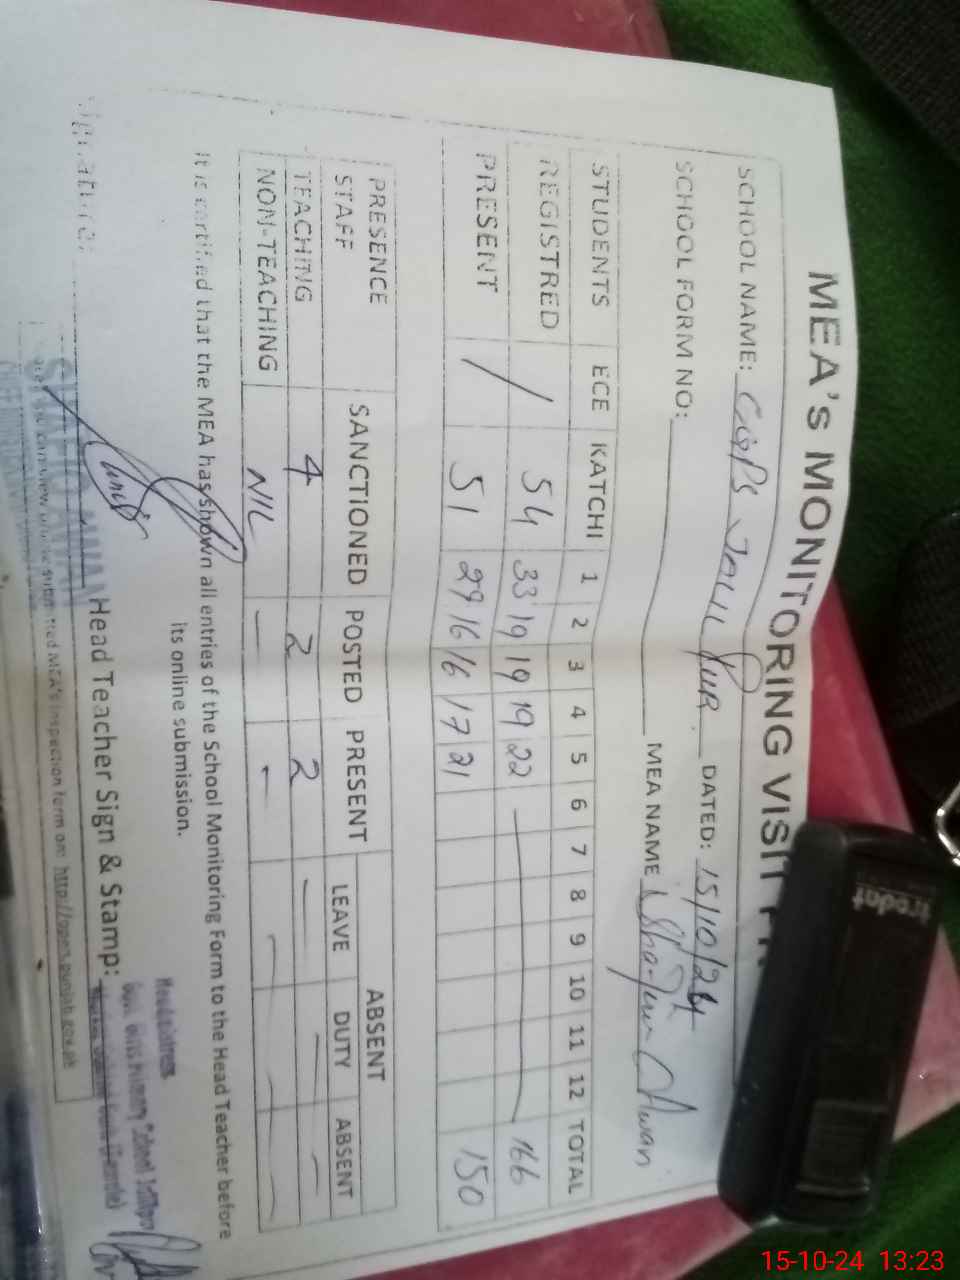 MEA's MONITORING VISIT
SCHOOL NAME: GGPS JALIL PUR DATED: 15/10/24
SCHOOL FORM NO: MEA NAME Awan
STUDENTS ECE KATCHI 1 2 3 4 5 6 7 8 9 10 11 12 TOTAL
REGISTRED 54 33 19 19 19 22 — 166
PRESENT / 51 29 16 16 17 21 150
PRESENCE SANCTIONED POSTED PRESENT ABSENT
STAFF LEAVE DUTY ABSENT
TEACHING 4 2 2 — — —
NON-TEACHING NIL — — — — —
It is certified that the MEA has shown all entries of the School Monitoring Form to the Head Teacher before
its online submission.
Signature: Head Teacher Sign & Stamp:
Headmistress
MEA's inspection form on: http://open.punjab.gov.pk
trodat
15-10-24 13:23